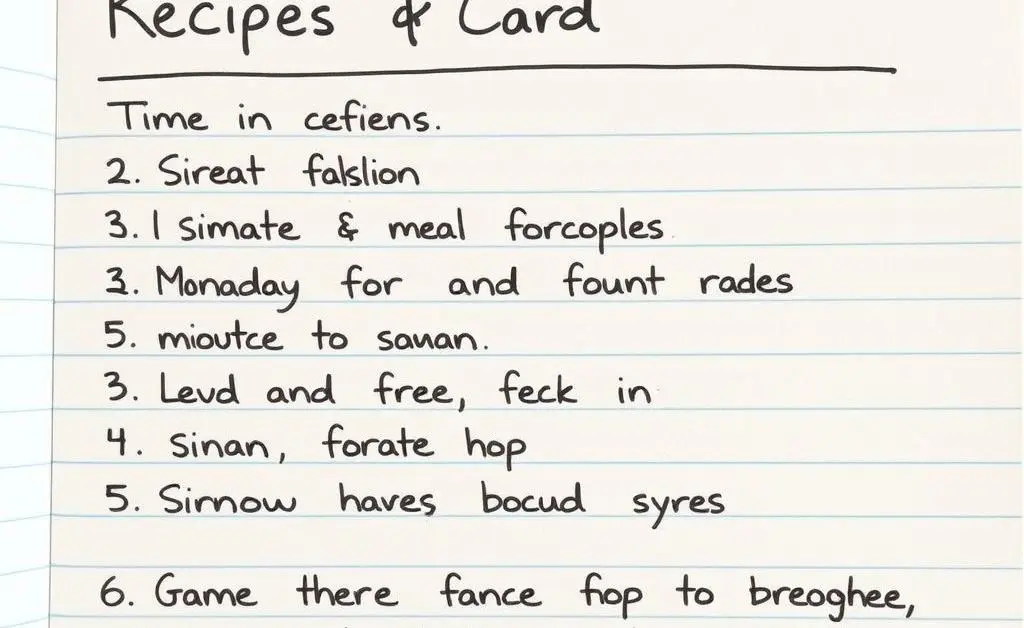 Recipes & Card
Time in cefiens.
2. Sireat falslion
3. I simate & meal forcoples
3. Monaday for and fount rades
5. mioutce to sauan.
3. Levd and free, feck in
4. Sinan, forate hop
5. Sirnow haves bocud syres
6. Game there fance fiop to breoghee,